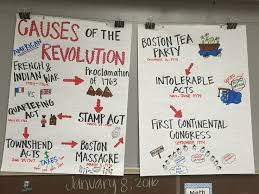 CAUSES OF THE
AMERICAN
REVOLUTION
FRENCH &
INDIAN WAR
Proclamation
of 1763
VS
QUARTERING
ACT
STAMP ACT
TOWNSHEND
ACTS
BOSTON
MASSACRE
TAXES
BOSTON TEA
PARTY
INTOLERABLE
ACTS
FIRST CONTINENTAL
CONGRESS
January 8, 2016
Math